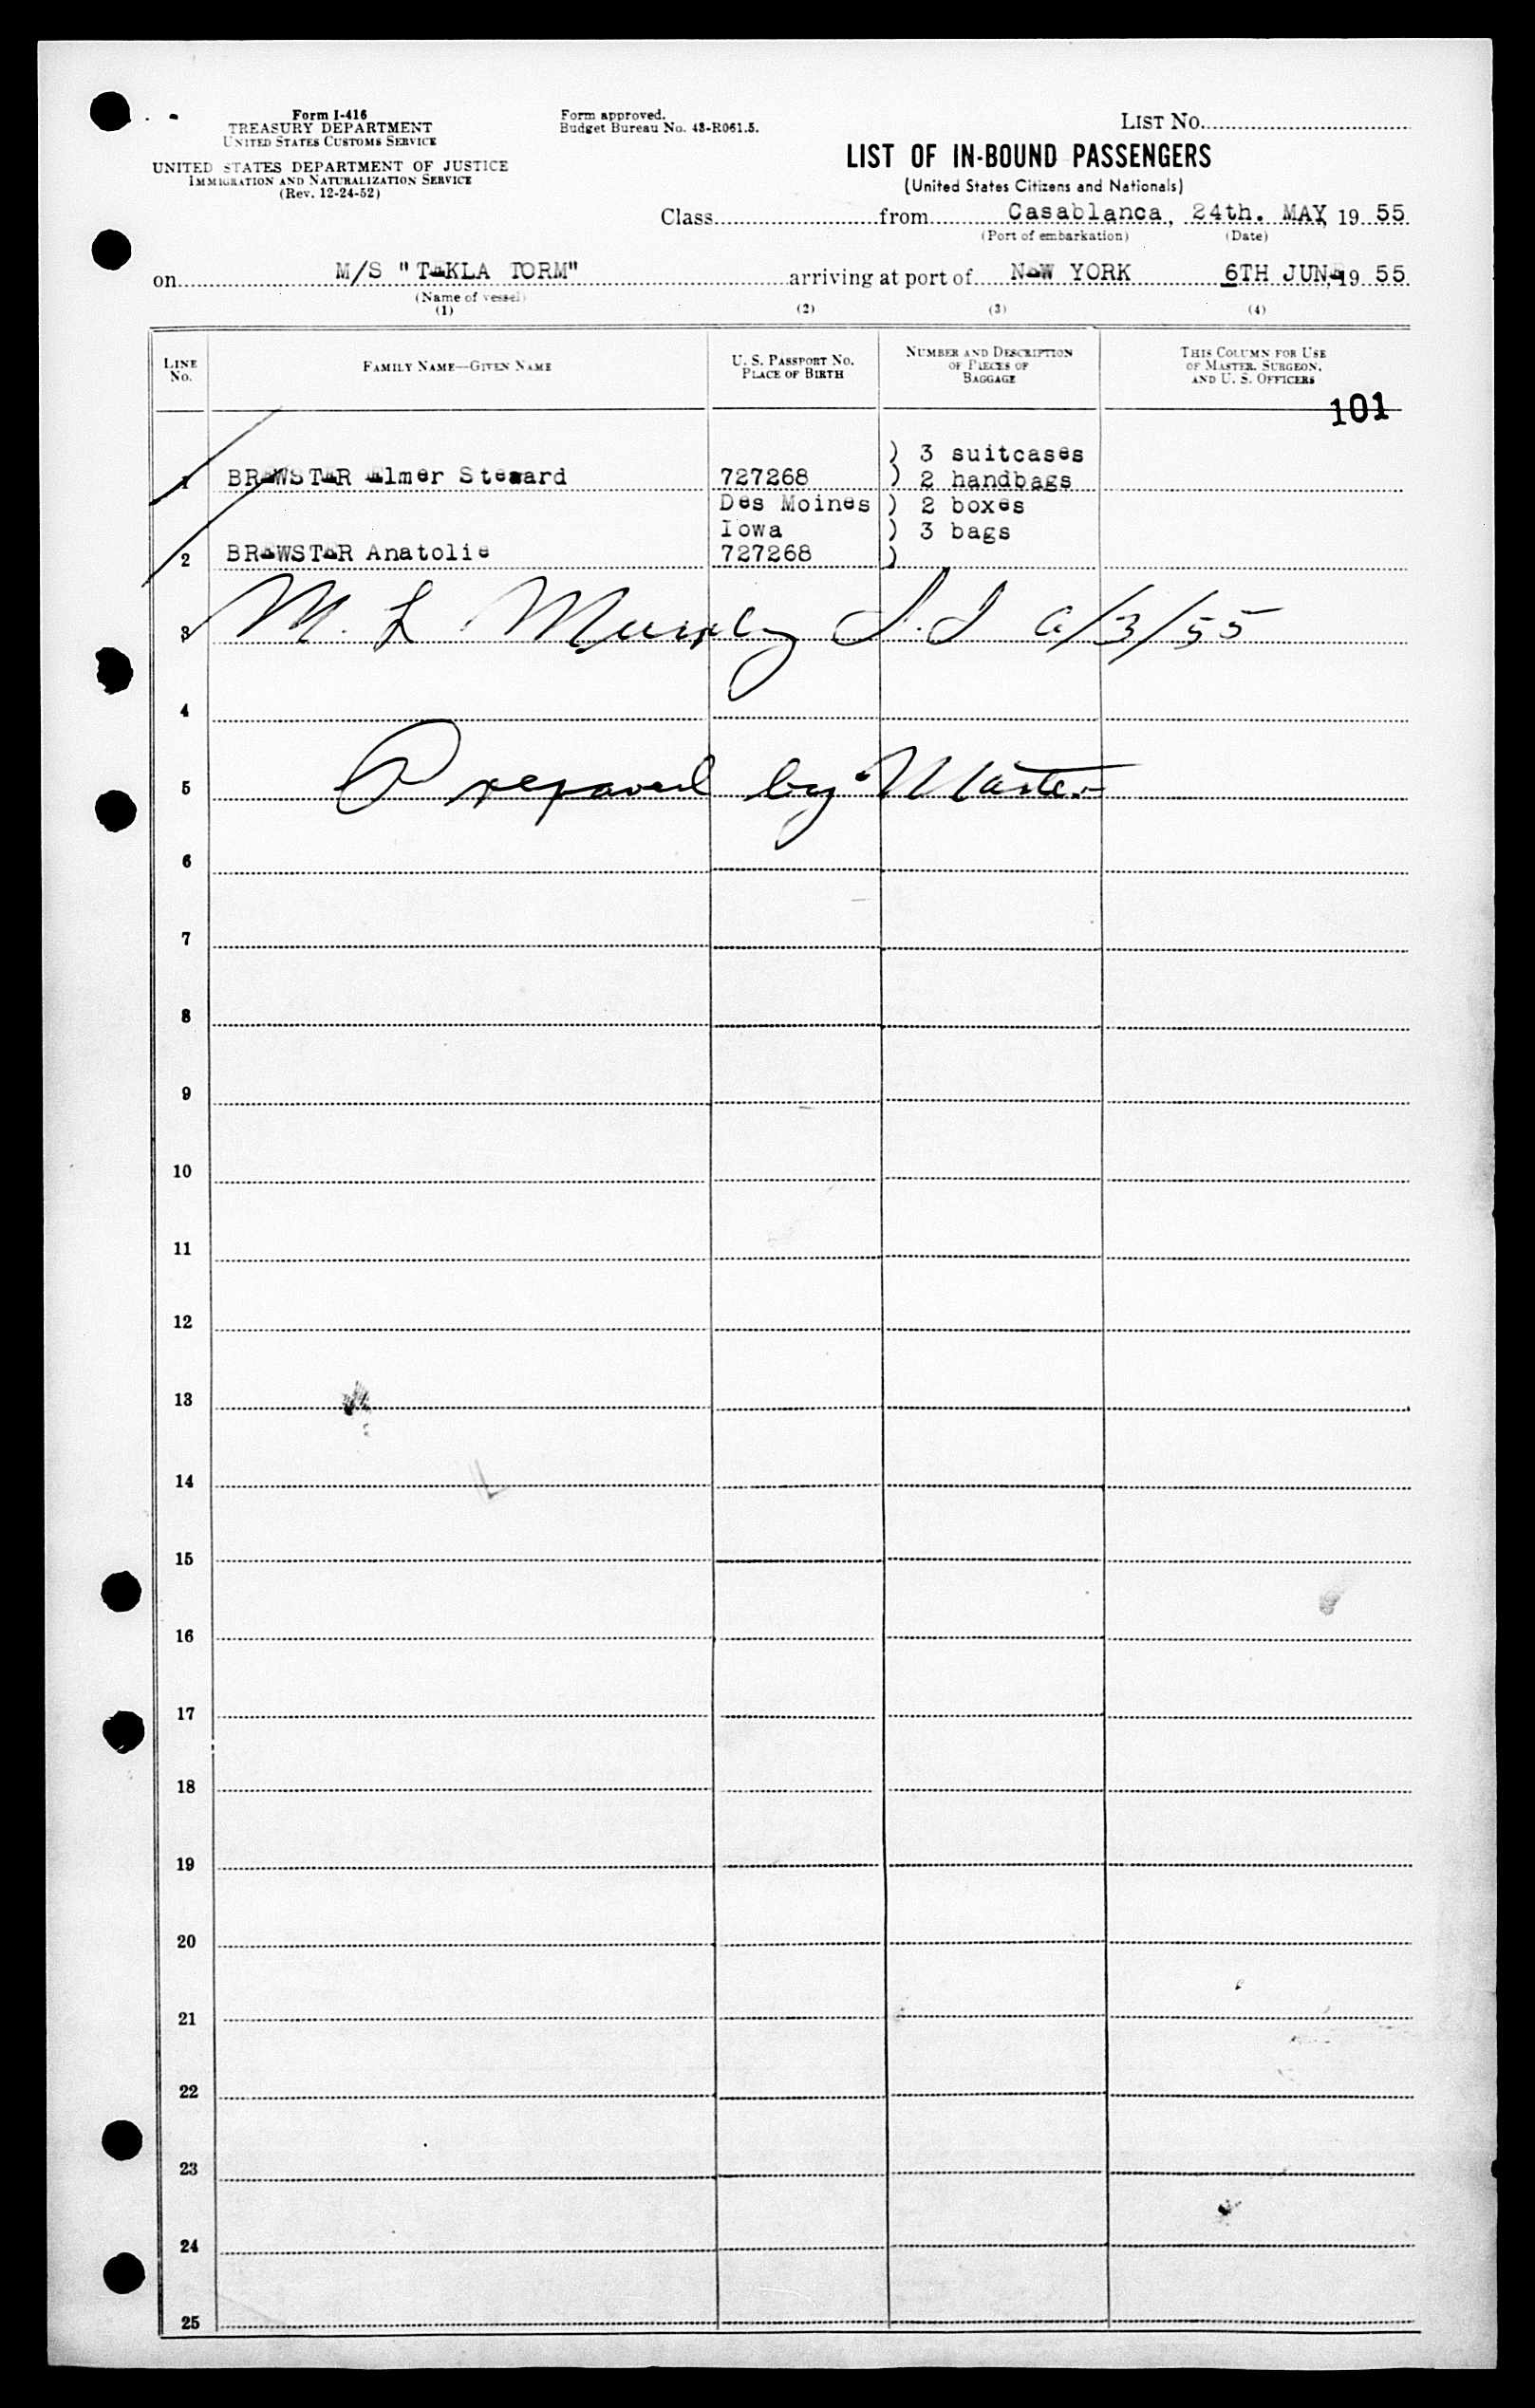 Form I-416
TREASURY DEPARTMENT
UNITED STATES CUSTOMS SERVICE
UNITED STATES DEPARTMENT OF JUSTICE
IMMIGRATION AND NATURALIZATION SERVICE
(Rev. 12-24-52)
Form approved.
Budget Bureau No. 43-R061.5.
LIST NO.
LIST OF IN-BOUND PASSENGERS
(United States Citizens and Nationals)
Class from Casablanca, 24th. MAY, 19 55
(Port of embarkation) (Date)
on M/S "TEKLA TORM" arriving at port of NEW YORK 6TH JUNE, 19 55
(Name of vessel)
(1) (2) (3) (4)
LINE NO.
FAMILY NAME—GIVEN NAME
U. S. PASSPORT NO.
PLACE OF BIRTH
NUMBER AND DESCRIPTION
OF PIECES OF
BAGGAGE
THIS COLUMN FOR USE
OF MASTER, SURGEON,
AND U. S. OFFICERS
101
) 3 suitcases
1 BREWSTER Elmer Steward 727268 ) 2 handbags
Des Moines ) 2 boxes
Iowa ) 3 bags
2 BREWSTER Anatolie 727268 )
3 M. L Murphy 6/3/55
4
5 Prepared by Master
6
7
8
9
10
11
12
13
14
15
16
17
18
19
20
21
22
23
24
25